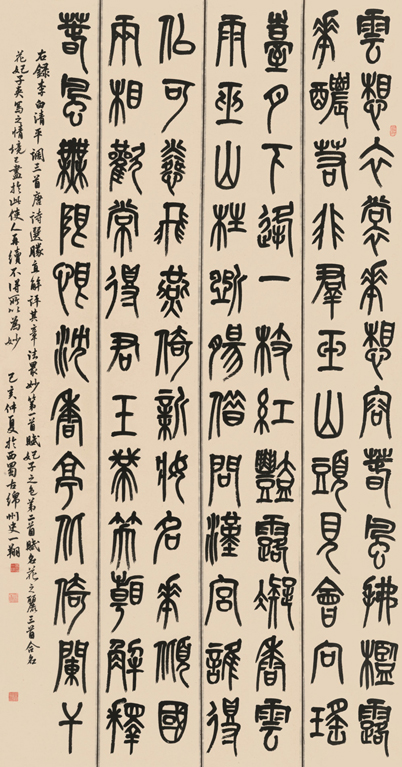 雲想衣裳華想容春風拂檻露
華醲若非群玉山頭見會向瑤
臺月下逢一枝紅豔露凝香雲
雨巫山枉斷腸借問漢宮誰得
似可憐飛燕倚新妝名華傾國
兩相歡常得君王帶笑看解釋
春風無限恨沈香亭北倚闌干
右錄李白清平調三首唐詩選勝直解評其章法最妙第一首賦妃子之色第二首賦名花之麗三首合名
花妃子夾寫之情境已盡於此使人再續不得所以為妙 己亥仲夏於西蜀古綿州史一翔